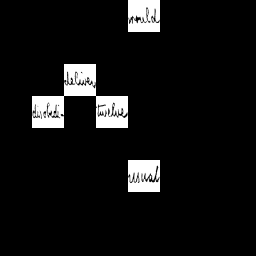 would
deliver
disobedi- twelve
usual